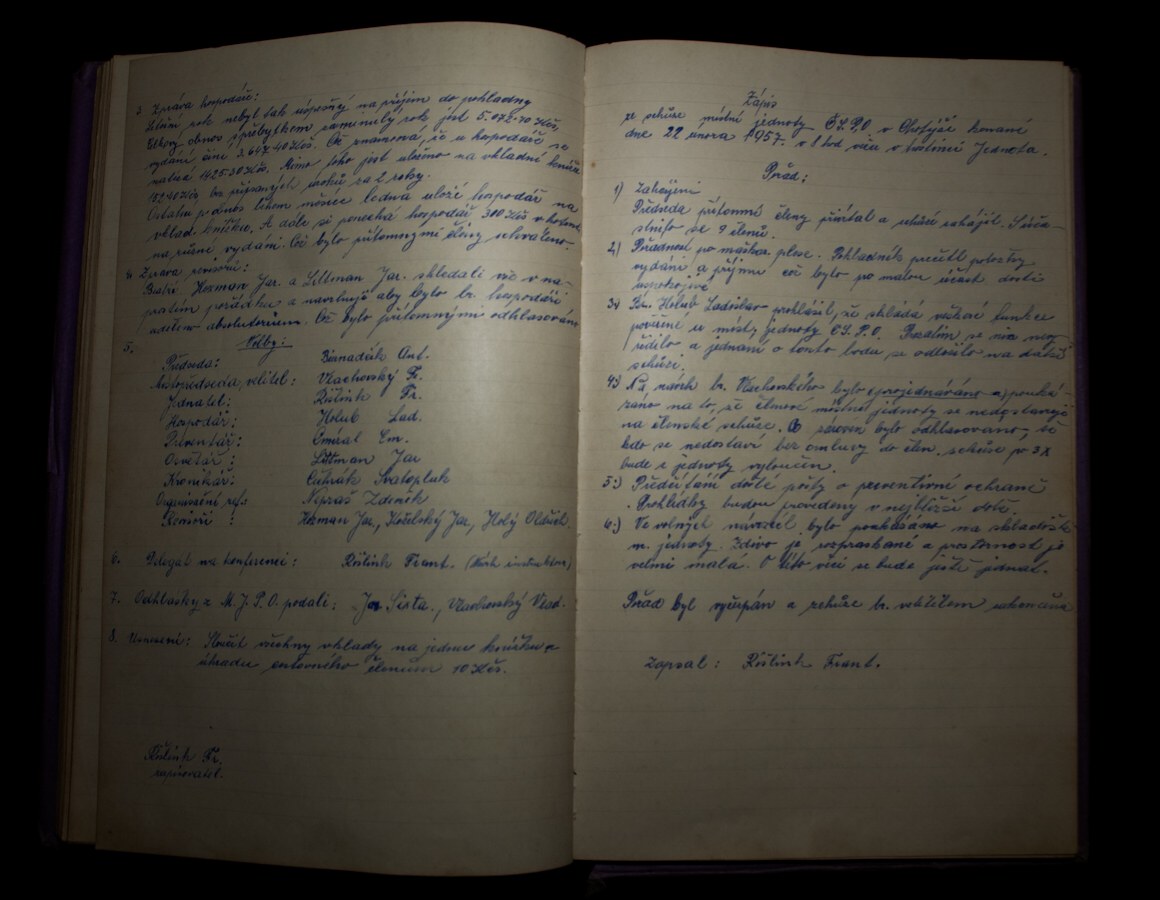 3. Zpráva hospodáře:
Letošní rok nebyl tak úspěšný na příjem do pokladny
Celkový obnos i přibytkem za minulý rok jest 5.072·70 Kčs,
vydání činí 3.647·40 Kčs. Což znamená, že u hospodáře se
nalézá 1425·30 Kčs. Mimo toho jest uloženo na vkladní knížce
bez připsaných úroků za 2 roky.
Ostatní během měsíce ledna uloží hospodář na
vklad. knížku. A dále si ponechá hospodář 300 Kčs v hotov.
na různé vydání. Což bylo přítomnými členy schváleno.
4. Zpráva revisorů:
Bratři Kozman Jar. a Littman Jar. shledali vše v na-
prostém pořádku a navrhují aby bylo br. hospodáři
uděleno absolutorium. Což bylo přítomnými odhlasováno
5. Volby:
Předseda: Bernadák Ant.
Místopředseda, velitel: Vlachovský F.
Jednatel: Růtink Fr.
Hospodář: Holub Lad.
Preventář: Em.
Osvětář: Littman Jar
Kronikář: Svatopluk
Organisační ref.: Nepraš Zdeněk
Revisoři: Kozman Jar, Jar, Holý Oldřich
6. Delegát na konferenci: Frant.
7. Odhlášky z M. J. P. O. podali: Jar Sixta., Vlachovský Vlad.
8. Usnesení: Sloučit všechny vklady na jednu knížku a
úhradu cestovného členům 10 Kčs.
Fr.
zapisovatel.
Zápis
ze schůze místní jednoty Č.S.P.O. v Chotýši konané
dne 22 února 1957. v 8 hod večer v hostinci Jednota.
Pořad:
1) Zahájení
Předseda přítomné členy přivítal a schůzi zahájil. Súča-
stnilo se 9 členů.
2) Přednost po maškar. plese. Pokladník přečetl položky
vydání a příjmu což bylo po malou účast dosti
uspokojivé
3) Br. Holub Ladislav prohlásil, že skládá veškeré funkce
pověřené u místy jednoty Č.S.P.O. Prozatím se nic nevy-
řídilo a jednání o tomto bodu se odložilo na další
schůzi.
4) Na návrh br. Vlachovského bylo projednáváno a pouká-
záno na to, že členové místní jednoty se nedostavují
na členské schůze. A zároveň bylo odhlasováno, že
kdo se nedostaví bez omluvy do člen. schůze po 3x
bude z jednoty vyloučen.
5.) Předčítání došlé pošty o preventivní ochraně
Prohlídky budou provedeny v nejbližší době.
6.) Ve volných návrzích bylo poukázáno na skladiště
m. jednoty. Zdivo je rozpraskané a prostornost je
velmi malá. O této věci se bude ještě jednat.
Pořad byl vyčerpán a schůze br. velitelem zakončena
Zapsal: Frant.